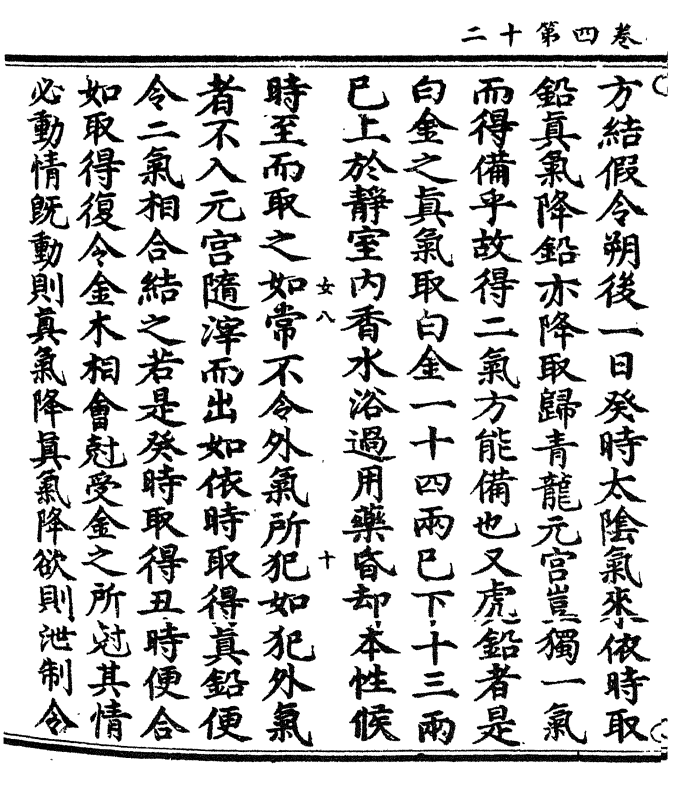 卷四第十二
方結假令朔後一日癸時太陰氣來依時取
鉛真氣降鉛亦降取歸青龍元宮豈獨一氣
而得備乎故得二氣方能備也又虎鉛者是
白金之真氣取白金一十四兩巳下十三兩
巳上於靜室內香水浴過用藥昏却本性候
女八
十
時至而取之如常不令外氣所犯如犯外氣
者不入元宮隨滓而出如依時取得真鉛便
令二氣相合結之若是癸時取得丑時便合
如取得復令金木相會尅受金之所尅其情
必動情既動則真氣降真氣降欲則泄制令